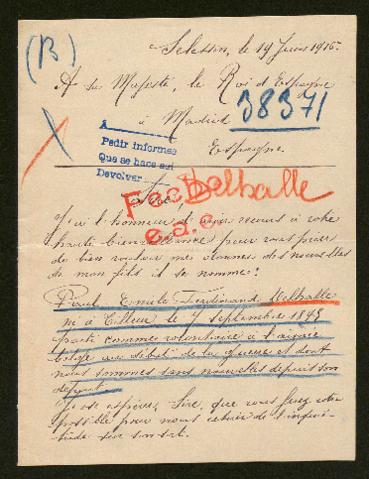 (B)
Sclessin, le 19 Juin 1915.
A Sa Majesté, le Roi d'Espagne
à Madrid
38371
Espagne
A
Pedir informes
Que se hace así
Devolver
Sire
Delhalle
J'ai l'honneur d'avoir recours à votre
haute bienveillance pour vous prier
de bien vouloir me donner des nouvelles
de mon fils il se nomme:
Paul Emile Ferdinand Delhalle
né à Tilleur, le 7 septembre 1895
parti comme volontaire à l'armée
belge au début de la guerre et dont
nous sommes sans nouvelles depuis son
départ.
J'ose espérer, Sire, que vous ferez votre
possible pour nous retirer de l'inquié
tude sur son sort.